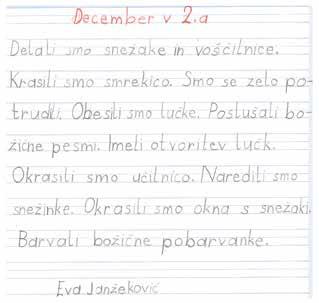 December v 2.a
Delali smo snežake in voščilnice.
Krasili smo smrekico. Smo se zelo po-
trudili. Obesili smo lučke. Poslušali bo-
žične pesmi. Imeli otvoritev lučk.
Okrasili smo učilnico. Naredili smo
snežinke. Okrasili smo okna s snežaki.
Barvali božične pobarvanke.
Eva Janžekovič